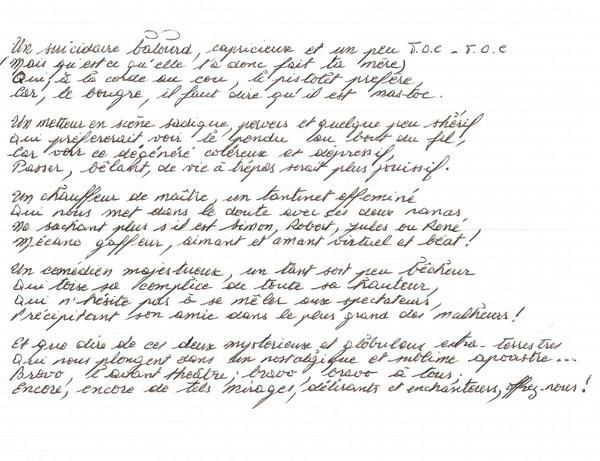 Un suicidaire balourd, capricieux et un peu T.O.C - T.O.C
(Mais qu'est ce qu'elle t'a donc fait ta mère)
Qui, à la corde au cou, le pistolet préfère,
Car, le bougre, il faut dire qu'il est mastoc.
Un metteur en scène sadique, pervers et quelque peu shérif
Qui préférerait voir le pendu au bout du fil,
Car voir ce dégénéré coléreux et dépressif,
Passer, bêlant, de vie à trépas serait plus jouissif.
Un chauffeur de maître, un tantinet efféminé
Qui nous met dans le doute avec ses deux nanas
Ne sachant plus s'il est Simon, Robert, Jules ou René,
Mécano gaffeur, aimant et amant virtuel et béat !
Un comédien majestueux, un tant soit peu bêcheur
Qui toise sa complice de toute sa hauteur,
Qui n'hésite pas à se mêler aux spectateurs,
Précipitant son amie dans le plus grand des malheurs !
Et que dire de ces deux mystérieux et globuleux extra-terrestres
Qui nous plongent dans un nostalgique et sublime apoastre...
Bravo, l'avant théâtre, bravo, bravo à tous.
Encore, encore de tels mirages, délirants et enchanteurs, offrez-nous !